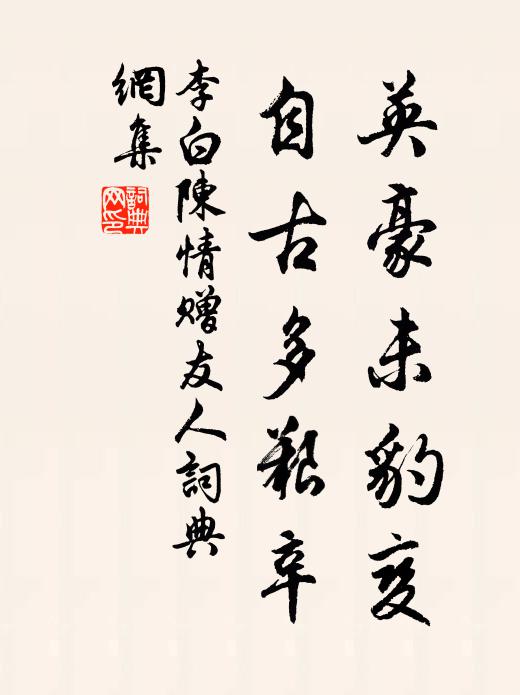 英豪未豹变
自古多艱辛
李白陳情贈友人詞典
網集
詞典網印